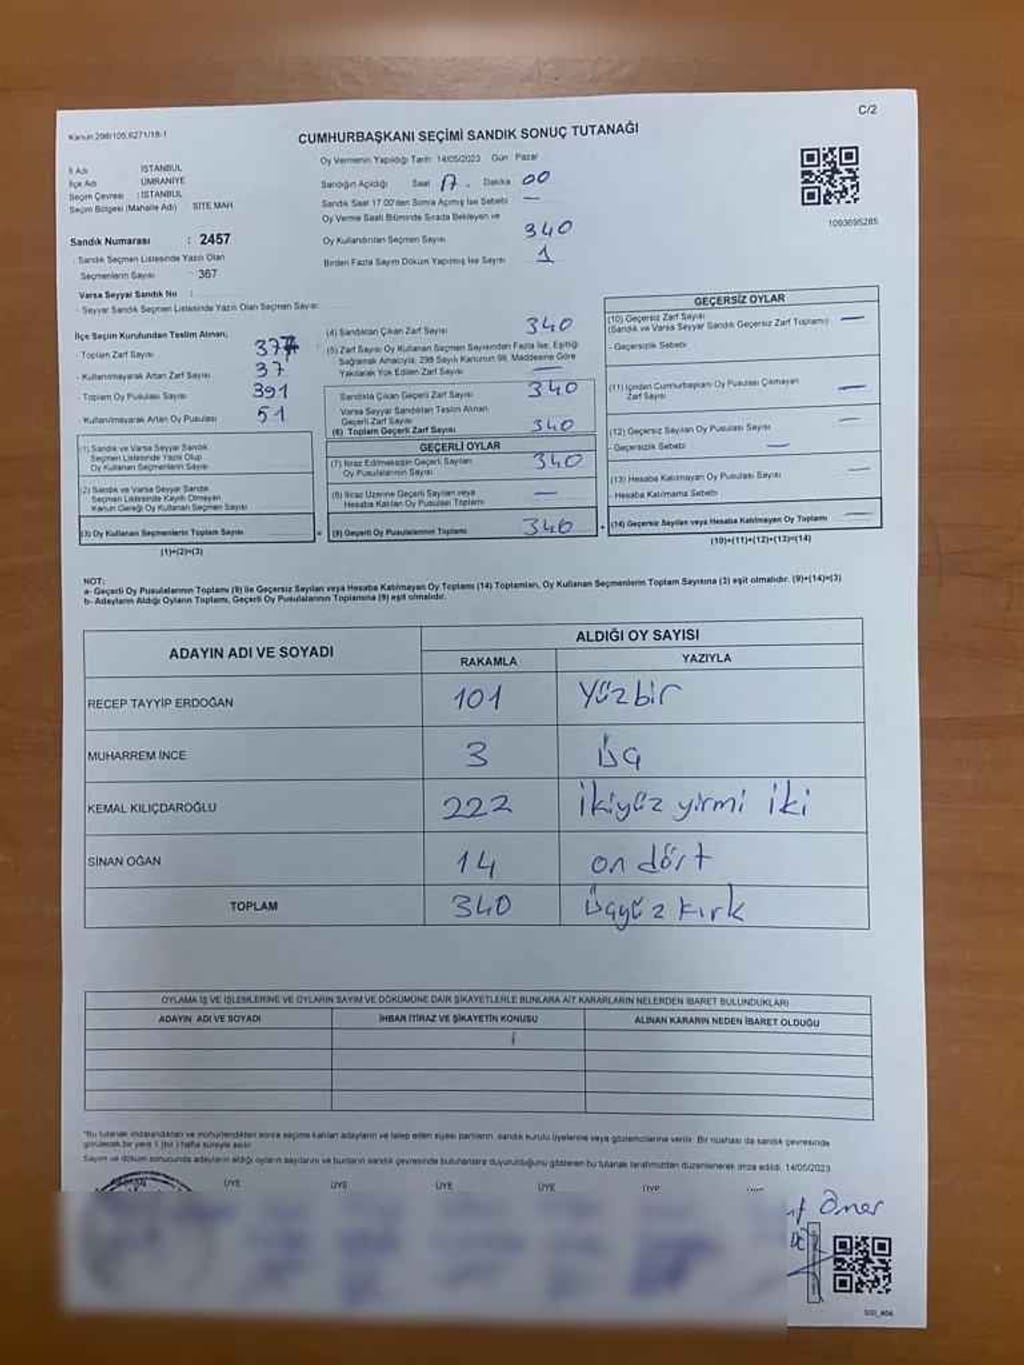 C/2
Kanun 298/105,6271/18-1
CUMHURBAŞKANI SEÇİMİ SANDIK SONUÇ TUTANAĞI
İl Adı İSTANBUL
İlçe Adı ÜMRANİYE
Seçim Çevresi : İSTANBUL
Seçim Bölgesi (Mahalle Adı) SİTE MAH.
Oy Vermenin Yapıldığı Tarih: 14/05/2023 Gün: Pazar
Sandığın Açıldığı Saat 17. Dakika 00
Sandık Saat 17.00'den Sonra Açılmış İse Sebebi —
Oy Verme Saati Bitiminde Sırada Bekleyen ve
Oy Kullandırılan Seçmen Sayısı 340
Birden Fazla Sayım Döküm Yapılmış İse Sayısı 1
1093695285
Sandık Numarası : 2457
Sandık Seçmen Listesinde Yazılı Olan
Seçmenlerin Sayısı 367
Varsa Seyyar Sandık No :
Seyyar Sandık Seçmen Listesinde Yazılı Olan Seçmen Sayısı:
İlçe Seçim Kurulundan Teslim Alınan;
- Toplam Zarf Sayısı 377
- Kullanılmayarak Artan Zarf Sayısı 37
- Toplam Oy Pusulası Sayısı 391
- Kullanılmayarak Artan Oy Pusulası 51
(1) Sandık ve Varsa Seyyar Sandık
Seçmen Listesinde Yazılı Olup
Oy Kullanan Seçmenlerin Sayısı
(2) Sandık ve Varsa Seyyar Sandık
Seçmen Listesinde Kayıtlı Olmayan
Kanun Gereği Oy Kullanan Seçmen Sayısı
(3) Oy Kullanan Seçmenlerin Toplam Sayısı
(1)+(2)=(3)
(4) Sandıktan Çıkan Zarf Sayısı 340
(5) Zarf Sayısı Oy Kullanan Seçmen Sayısından Fazla İse, Eşitliği
Sağlamak Amacıyla, 298 Sayılı Kanunun 98. Maddesine Göre
Yakılarak Yok Edilen Zarf Sayısı —
Sandıkta Çıkan Geçerli Zarf Sayısı 340
Varsa Seyyar Sandıktan Teslim Alınan
Geçerli Zarf Sayısı
(6) Toplam Geçerli Zarf Sayısı 340
GEÇERLİ OYLAR
(7) İtiraz Edilmeksizin Geçerli Sayılan
Oy Pusulalarının Sayısı 340
(8) İtiraz Üzerine Geçerli Sayılan veya
Hesaba Katılan Oy Pusulası Toplamı —
(9) Geçerli Oy Pusulalarının Toplamı 340
GEÇERSİZ OYLAR
(10) Geçersiz Zarf Sayısı —
(Sandık ve Varsa Seyyar Sandık Geçersiz Zarf Toplamı)
- Geçersizlik Sebebi
(11) İçinden Cumhurbaşkanı Oy Pusulası Çıkmayan —
Zarf Sayısı
(12) Geçersiz Sayılan Oy Pusulası Sayısı —
- Geçersizlik Sebebi —
(13) Hesaba Katılmayan Oy Pusulası Sayısı —
- Hesaba Katılmama Sebebi
(14) Geçersiz Sayılan veya Hesaba Katılmayan Oy Toplamı —
(10)+(11)+(12)+(13)=(14)
NOT:
a- Geçerli Oy Pusulalarının Toplamı (9) ile Geçersiz Sayılan veya Hesaba Katılmayan Oy Toplamı (14) Toplamları, Oy Kullanan Seçmenlerin Toplam Sayısına (3) eşit olmalıdır. (9)+(14)=(3)
b- Adayların Aldığı Oyların Toplamı, Geçerli Oy Pusulalarının Toplamına (9) eşit olmalıdır.
ADAYIN ADI VE SOYADI
ALDIĞI OY SAYISI
RAKAMLA YAZIYLA
RECEP TAYYİP ERDOĞAN 101 Yüzbir
MUHARREM İNCE 3 üç
KEMAL KILIÇDAROĞLU 222 ikiyüz yirmi iki
SİNAN OĞAN 14 on dört
TOPLAM 340 üçyüz kırk
OYLAMA İŞ VE İŞLEMLERİNE VE OYLARIN SAYIM VE DÖKÜMÜNE DAİR ŞİKAYETLERLE BUNLARA AİT KARARLARIN NELERDEN İBARET BULUNDUKLARI
ADAYIN ADI VE SOYADI İHBAR İTİRAZ VE ŞİKAYETİN KONUSU ALINAN KARARIN NEDEN İBARET OLDUĞU
*Bu tutanak imzalandıktan ve mühürlendikten sonra seçime katılan adayların ve talep eden siyasi partilerin, sandık kurulu üyelerine veya gözlemcilerine verilir. Bir nüshası da sandık çevresinde
görülecek bir yere 1 (bir) hafta süreyle asılır.
Sayım ve döküm sonucunda adayların aldığı oyların sayılarını ve bunların sandık çevresinde bulunanlara duyurulduğunu gösteren bu tutanak tarafımızdan düzenlenerek imza edildi. 14/05/2023
ÜYE ÜYE ÜYE ÜYE ÜYE
Öner